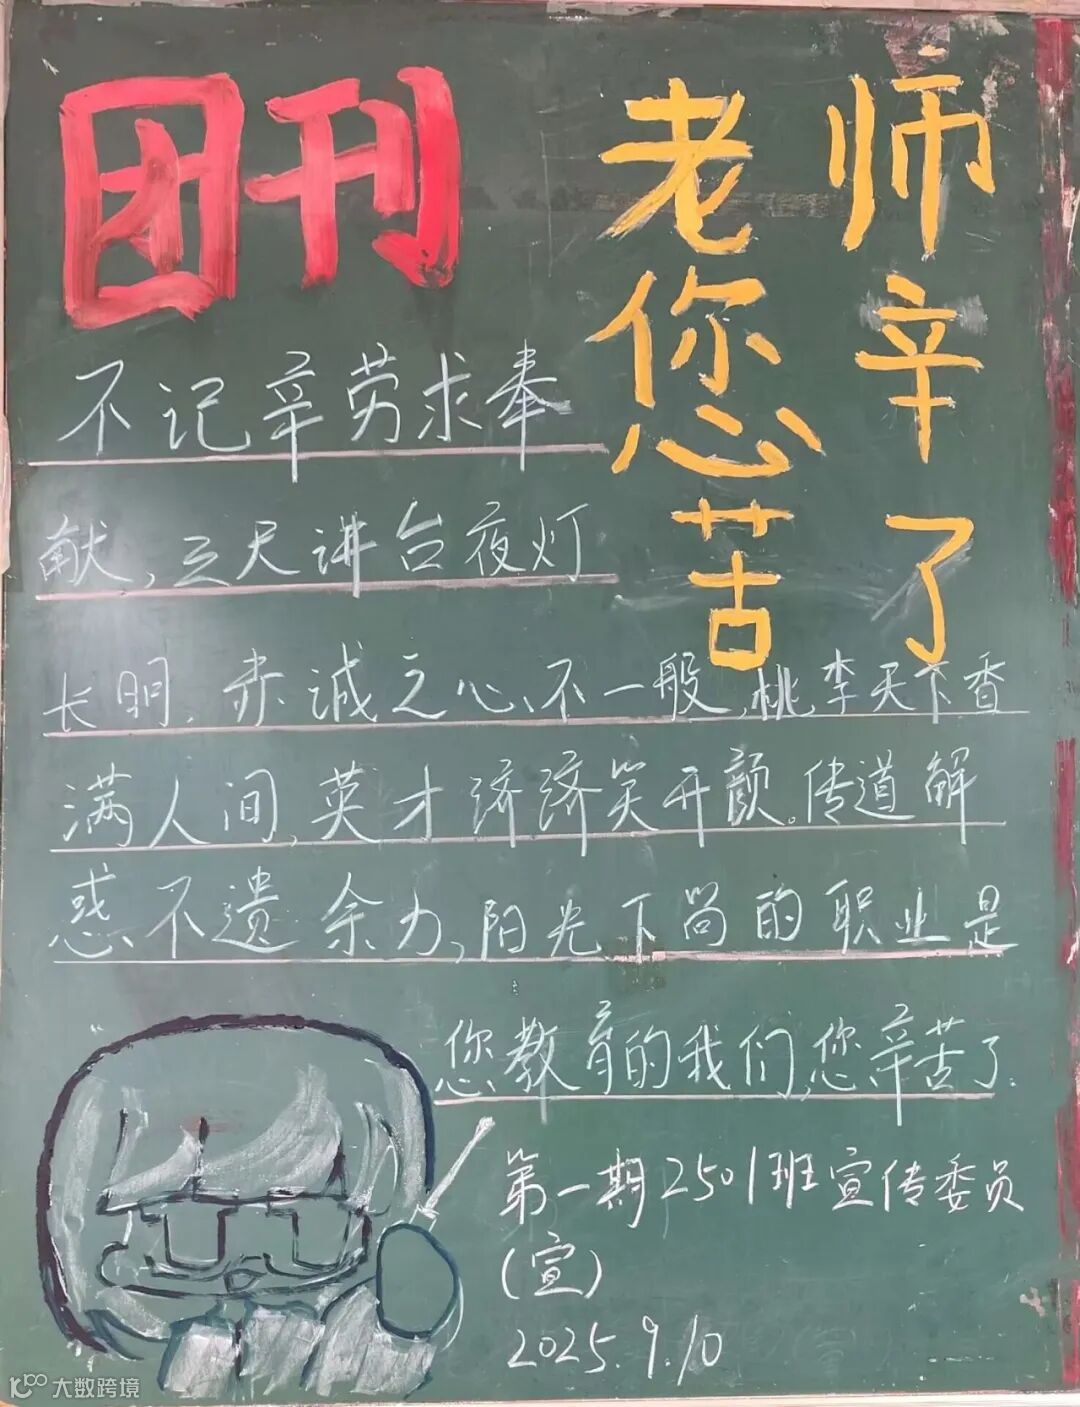 团刊
老师
您辛
苦了
不记辛劳求奉
献,三尺讲台夜灯
长明,赤诚之心不一般,桃李天下香
满人间,英才济济笑开颜。传道解
惑不遗余力,阳光下尚的职业是
您教育的我们,您辛苦了.
第一期2501班宣传委员
(宣)
2025.9.10
大数跨境